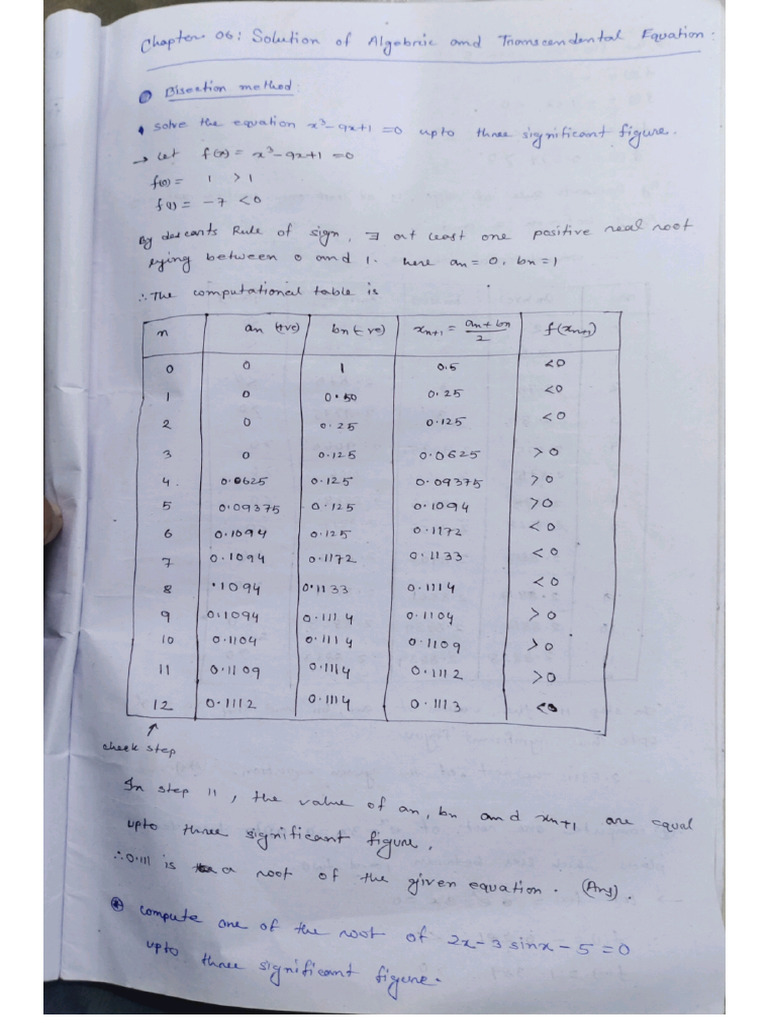 Chapter 06: Solution of Algebraic and Transcendental Equation.
Bisection method:
solve the equation x³-9x+1=0 upto three significant figure.
→ Let f(x) = x³-9x+1 =0
f(0) = 1 >1
f(1) = -7 <0
By descarts Rule of sign, ∃ at least one positive real root
lying between 0 and 1. here an = 0, bn = 1
∴ The computational table is
n an (+ve) bn (-ve) xn+1 = an+bn/2 f(xn+1)
0 0 1 0.5 <0
1 0 0.50 0.25 <0
2 0 0.25 0.125 <0
3 0 0.125 0.0625 >0
4. 0.0625 0.125 0.09375 >0
5 0.09375 0.125 0.1094 >0
6 0.1094 0.125 0.1172 <0
7 0.1094 0.1172 0.1133 <0
8 .1094 0.1133 0.1114 <0
9 0.1094 0.1114 0.1104 >0
10 0.1104 0.1114 0.1109 >0
11 0.1109 0.1114 0.1112 >0
12 0.1112 0.1114 0.1113 <0
↑
check step
In step 11, the value of an, bn and xn+1 are equal
upto three significant figure.
∴ 0.111 is a root of the given equation. (Ans).
compute one of the root of 2x-3 sinx-5=0
upto three significant figure.